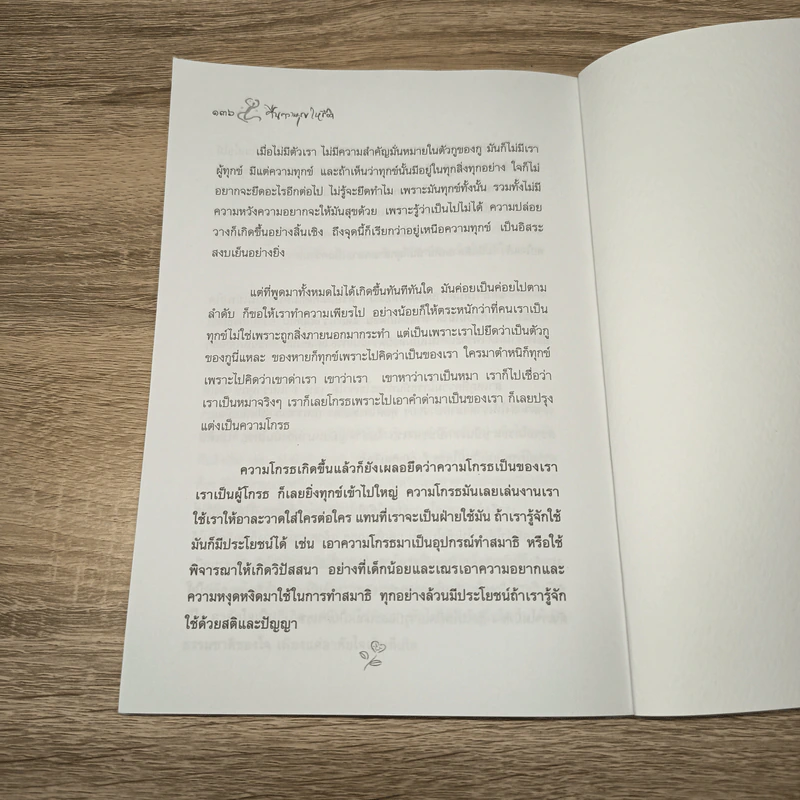 ๑๓๖
เมื่อไม่มีตัวเรา ไม่มีความสำคัญมั่นหมายในตัวกูของกู มันก็ไม่มีเรา
ผู้ทุกข์ มีแต่ความทุกข์ และถ้าเห็นว่าทุกข์นั้นมีอยู่ในทุกสิ่งทุกอย่าง ใจก็ไม่
อยากจะยึดอะไรอีกต่อไป ไม่รู้จะยึดทำไม เพราะมันทุกข์ทั้งนั้น รวมทั้งไม่มี
ความหวังความอยากจะให้มันสุขด้วย เพราะรู้ว่าเป็นไปไม่ได้ ความปล่อย
วางก็เกิดขึ้นอย่างสิ้นเชิง ถึงจุดนี้ก็เรียกว่าอยู่เหนือความทุกข์ เป็นอิสระ
สงบเย็นอย่างยิ่ง
แต่ที่พูดมาทั้งหมดไม่ได้เกิดขึ้นทันทีทันใด มันค่อยเป็นค่อยไปตาม
ลำดับ ก็ขอให้เราทำความเพียรไป อย่างน้อยก็ให้ตระหนักว่าที่คนเราเป็น
ทุกข์ไม่ใช่เพราะถูกสิ่งภายนอกมากระทำ แต่เป็นเพราะเราไปยึดว่าเป็นตัวกู
ของกูนี่แหละ ของหายก็ทุกข์เพราะไปคิดว่าเป็นของเรา ใครมาตำหนิก็ทุกข์
เพราะไปคิดว่าเขาด่าเรา เขาว่าเรา เขาหาว่าเราเป็นหมา เราก็ไปเชื่อว่า
เราเป็นหมาจริงๆ เราก็เลยโกรธเพราะไปเอาคำด่ามาเป็นของเรา ก็เลยปรุง
แต่งเป็นความโกรธ
ความโกรธเกิดขึ้นแล้วก็ยังเผลอยึดว่าความโกรธเป็นของเรา
เราเป็นผู้โกรธ ก็เลยยิ่งทุกข์เข้าไปใหญ่ ความโกรธมันเลยเล่นงานเรา
ใช้เราให้อาละวาดใส่ใครต่อใคร แทนที่เราจะเป็นฝ่ายใช้มัน ถ้าเรารู้จักใช้
มันก็มีประโยชน์ได้ เช่น เอาความโกรธมาเป็นอุปกรณ์ทำสมาธิ หรือใช้
พิจารณาให้เกิดวิปัสสนา อย่างที่เด็กน้อยและเณรเอาความอยากและ
ความหงุดหงิดมาใช้ในการทำสมาธิ ทุกอย่างล้วนมีประโยชน์ถ้าเรารู้จัก
ใช้ด้วยสติและปัญญา